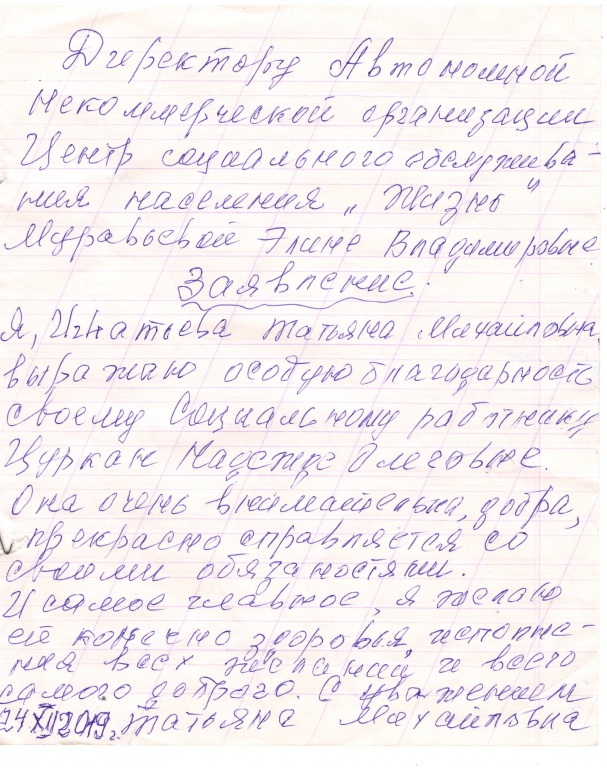 Директору Автономной
некоммерческой организации
Центр социального обслужива-
ния населения „Жизнь"
Муравьевой Элине Владимировне
Заявление.
Я, Игнатьева Татьяна Михайловна,
выражаю особую благодарность
своему Социальному работнику
Цуркан Надежде Олеговне.
Она очень внимательна, добра,
прекрасно справляется со
своими обязаностями.
И самое главное, я желаю
ей конечно здоровья, исполне-
ния всех желаний и всего
самого доброго. С уважением
24 XII 2019г. Татьяна Михайловна